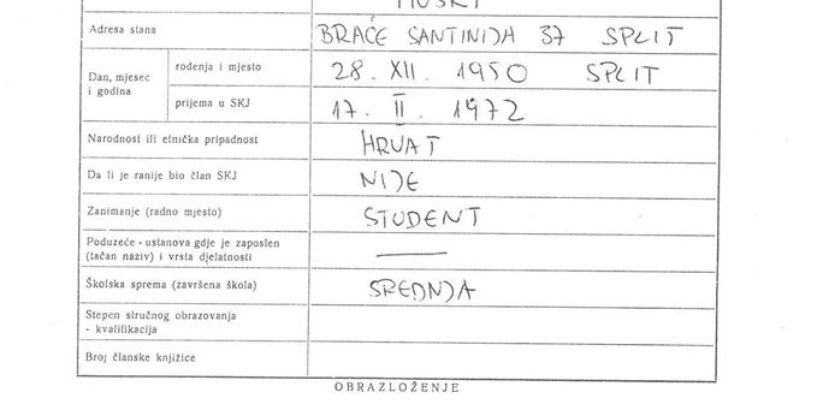 MUŠKI
Adresa stana BRAĆE SANTINIJA 37 SPLIT
Dan, mjesec i godina
rođenja i mjesto 28. XII. 1950 SPLIT
prijema u SKJ 17. II. 1972
Narodnost ili etnička pripadnost HRVAT
Da li je ranije bio član SKJ NIJE
Zanimanje (radno mjesto) STUDENT
Poduzeće - ustanova gdje je zaposlen
(tačan naziv) i vrsta djelatnosti ———
Školska sprema (završena škola) SREDNJA
Stepen stručnog obrazovanja
- kvalifikacija
Broj članske knjižice
OBRAZLOŽENJE